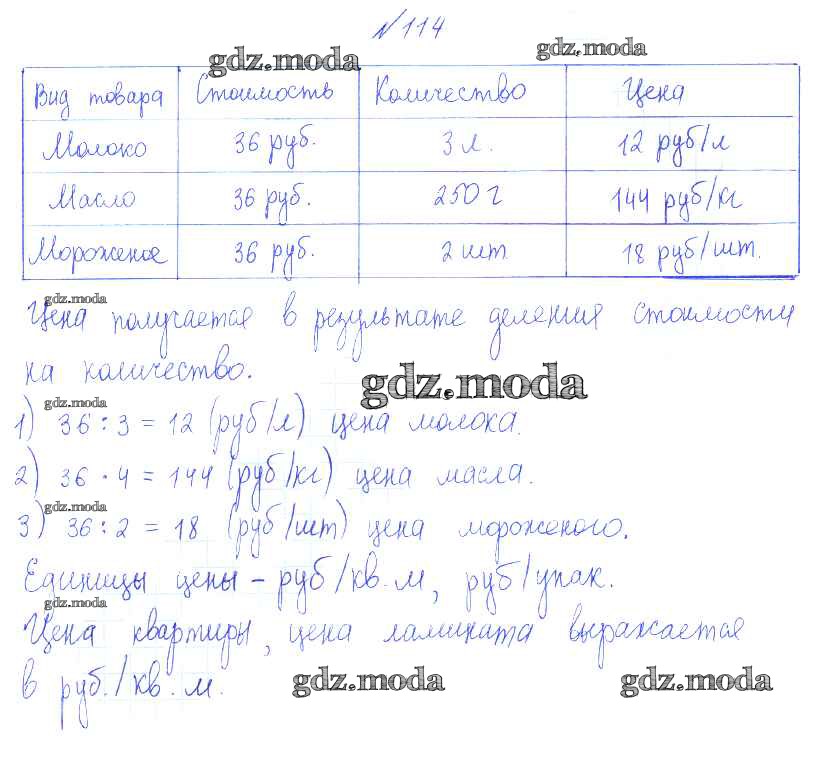 № 114
gdz.moda gdz.moda
Вид товара Стоимость Количество Цена
Молоко 36 руб. 3 л. 12 руб/л
Масло 36 руб. 250 г 144 руб/кг
Мороженое 36 руб. 2 шт 18 руб/шт.
gdz.moda
Цена получается в результате деления стоимости
на количество.
gdz.moda
gdz.moda
1) 36 : 3 = 12 (руб/л) цена молока.
2) 36 · 4 = 144 (руб/кг) цена масла.
gdz.moda
3) 36 : 2 = 18 (руб/шт) цена мороженого.
Единицы цены – руб/кв.м, руб/упак.
gdz.moda
Цена квартиры, цена ламината выражается
в руб./кв.м.
gdz.moda gdz.moda